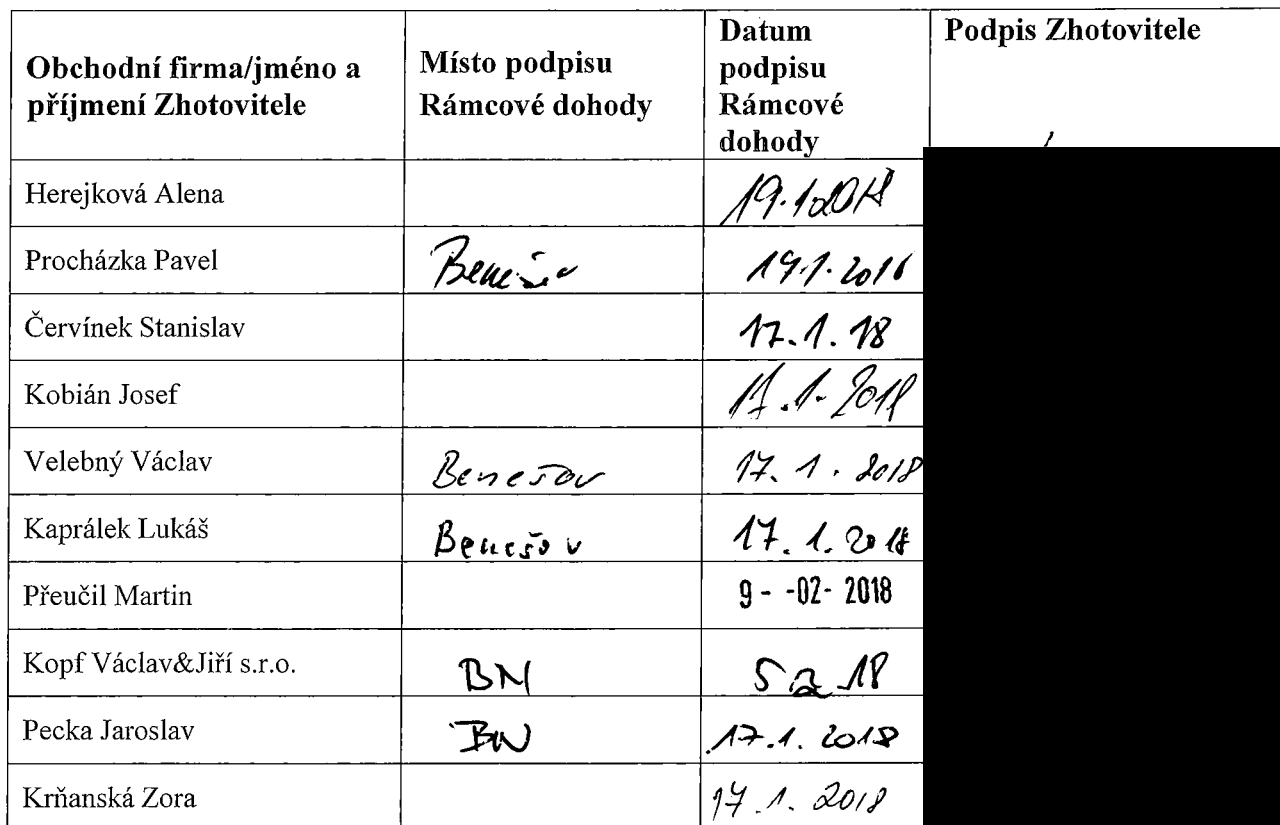 Obchodní firma/jméno a příjmení Zhotovitele | Místo podpisu Rámcové dohody | Datum podpisu Rámcové dohody | Podpis Zhotovitele
Herejková Alena | | 19.1.2018
Procházka Pavel | Benešov | 19.1.2018
Červínek Stanislav | | 17.1.18
Kobián Josef | | 17.1.2018
Velebný Václav | Benešov | 17.1.2018
Kaprálek Lukáš | Benešov | 17.1.2018
Přeučil Martin | | 9- -02- 2018
Kopf Václav&Jiří s.r.o. | BN | 5 2 18
Pecka Jaroslav | BN | 17.1.2018
Krňanská Zora | | 17.1.2018